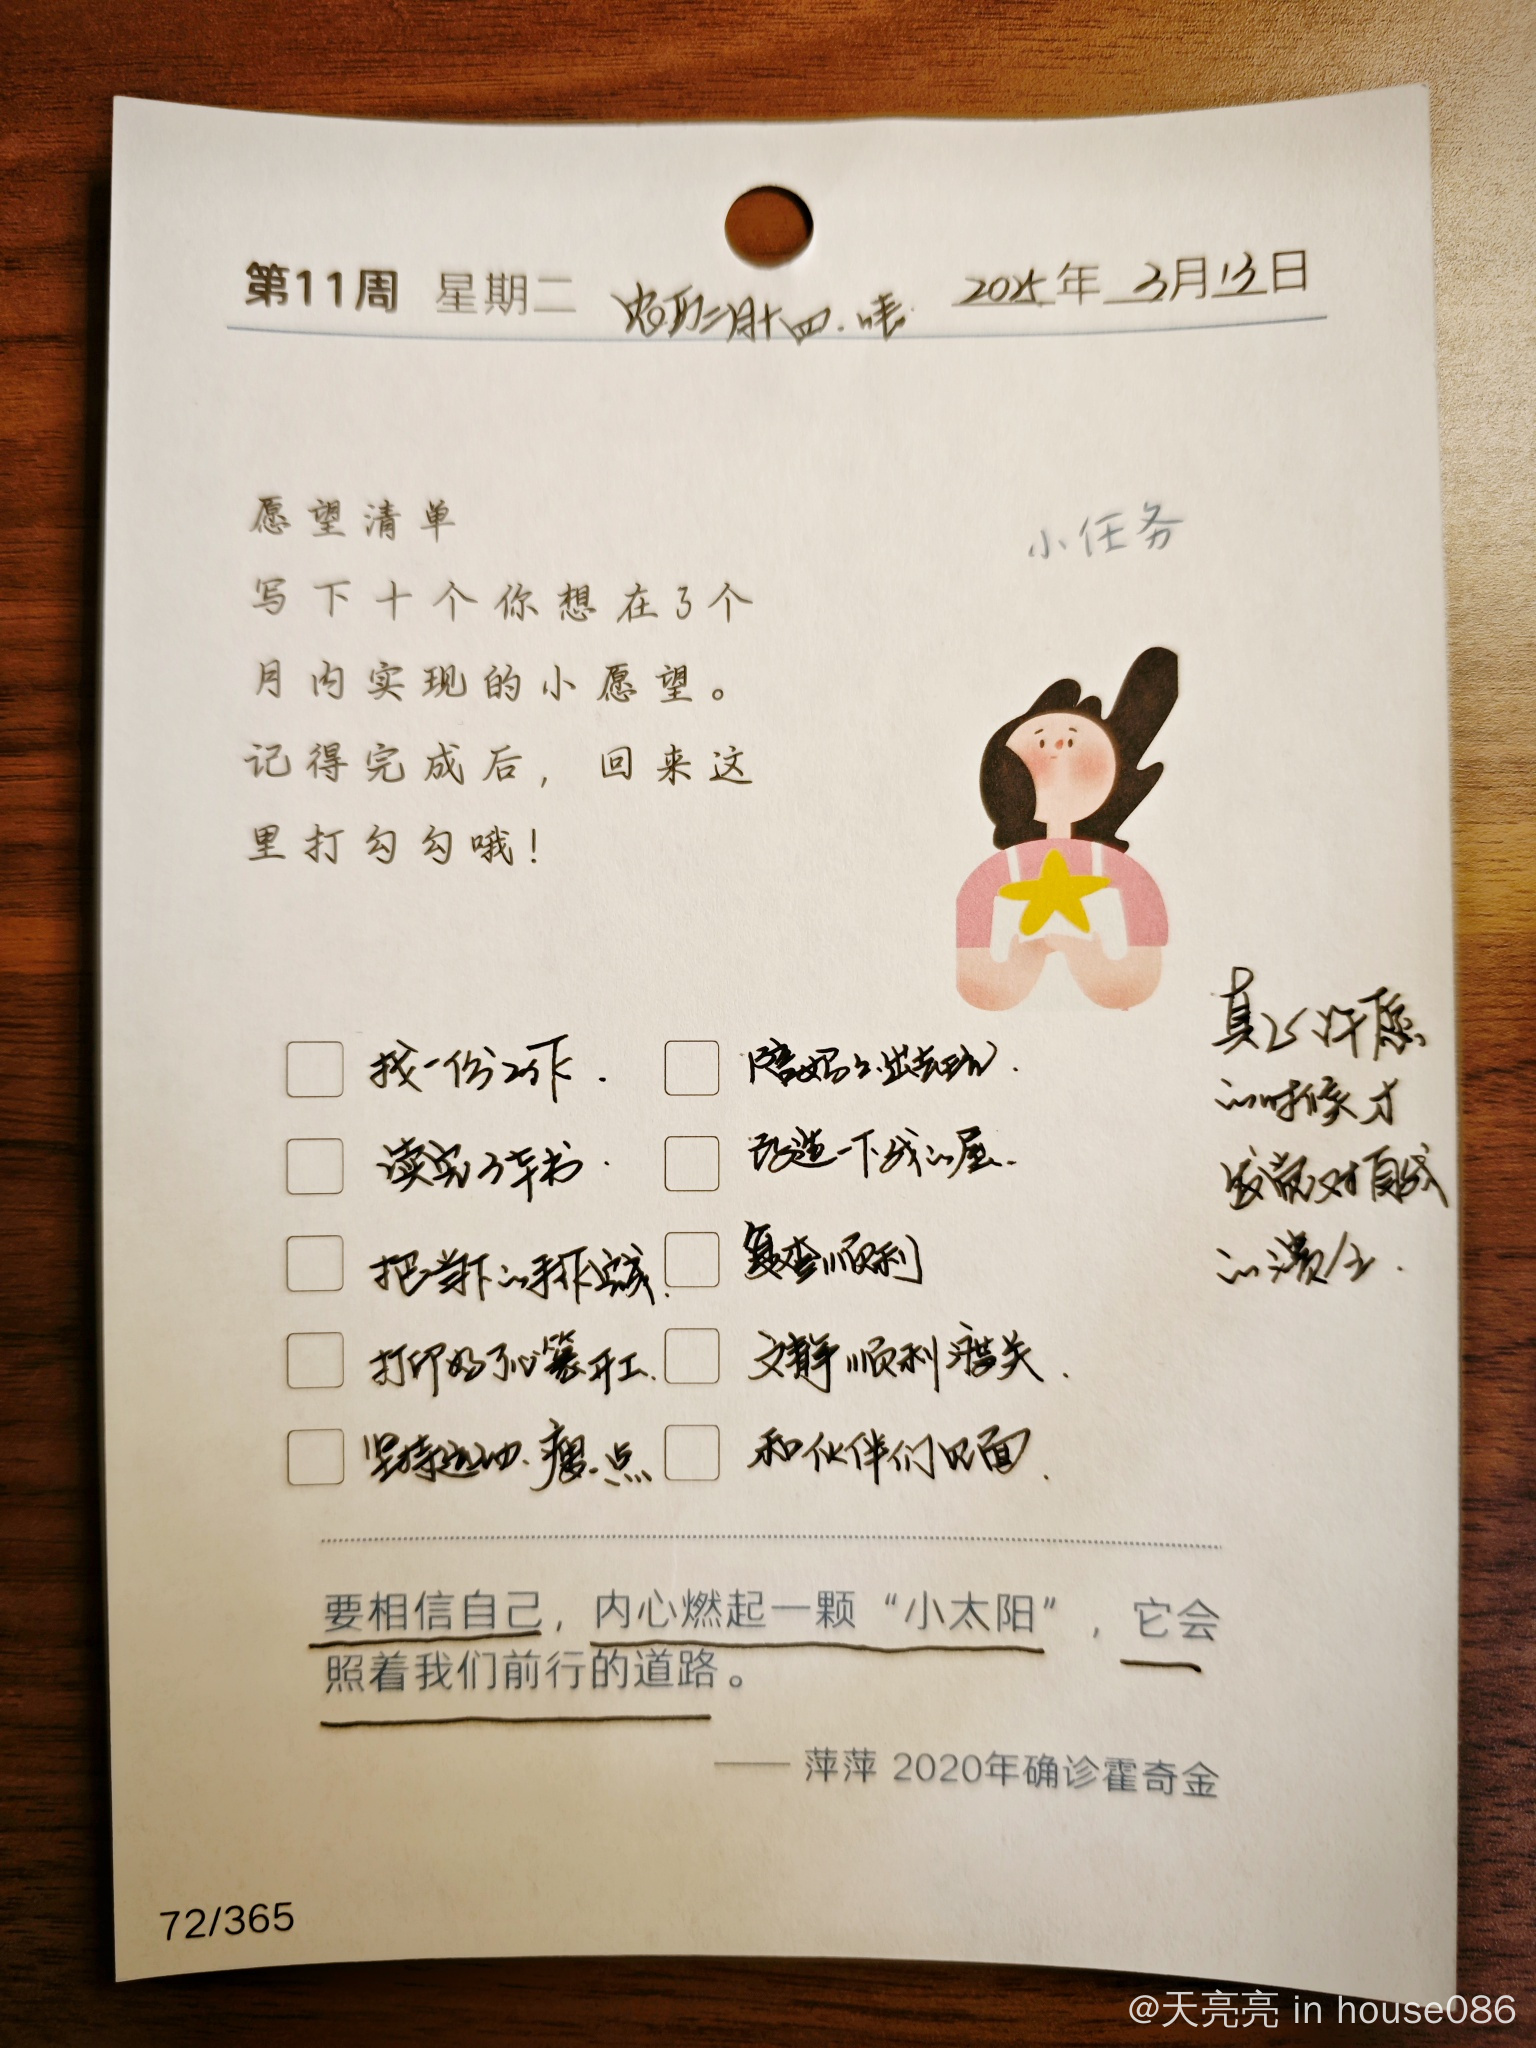 第11周 星期二 农历二月十四. 2025年 3月13日
愿望清单
小任务
写下十个你想在3个
月内实现的小愿望。
记得完成后，回来这
里打勾勾哦！
找一份工作.
陪妈妈出去玩.
读完3本书.
改造一下我的屋.
把当下的手作完成.
复查顺利
打印好 开工.
文静顺利 .
坚持运动.瘦一点
和伙伴们见面.
真的许愿
的时候才
发觉对自我
的 .
要相信自己，内心燃起一颗“小太阳”，它会
照着我们前行的道路。
—— 萍萍 2020年确诊霍奇金
72/365
@天亮亮 in house086